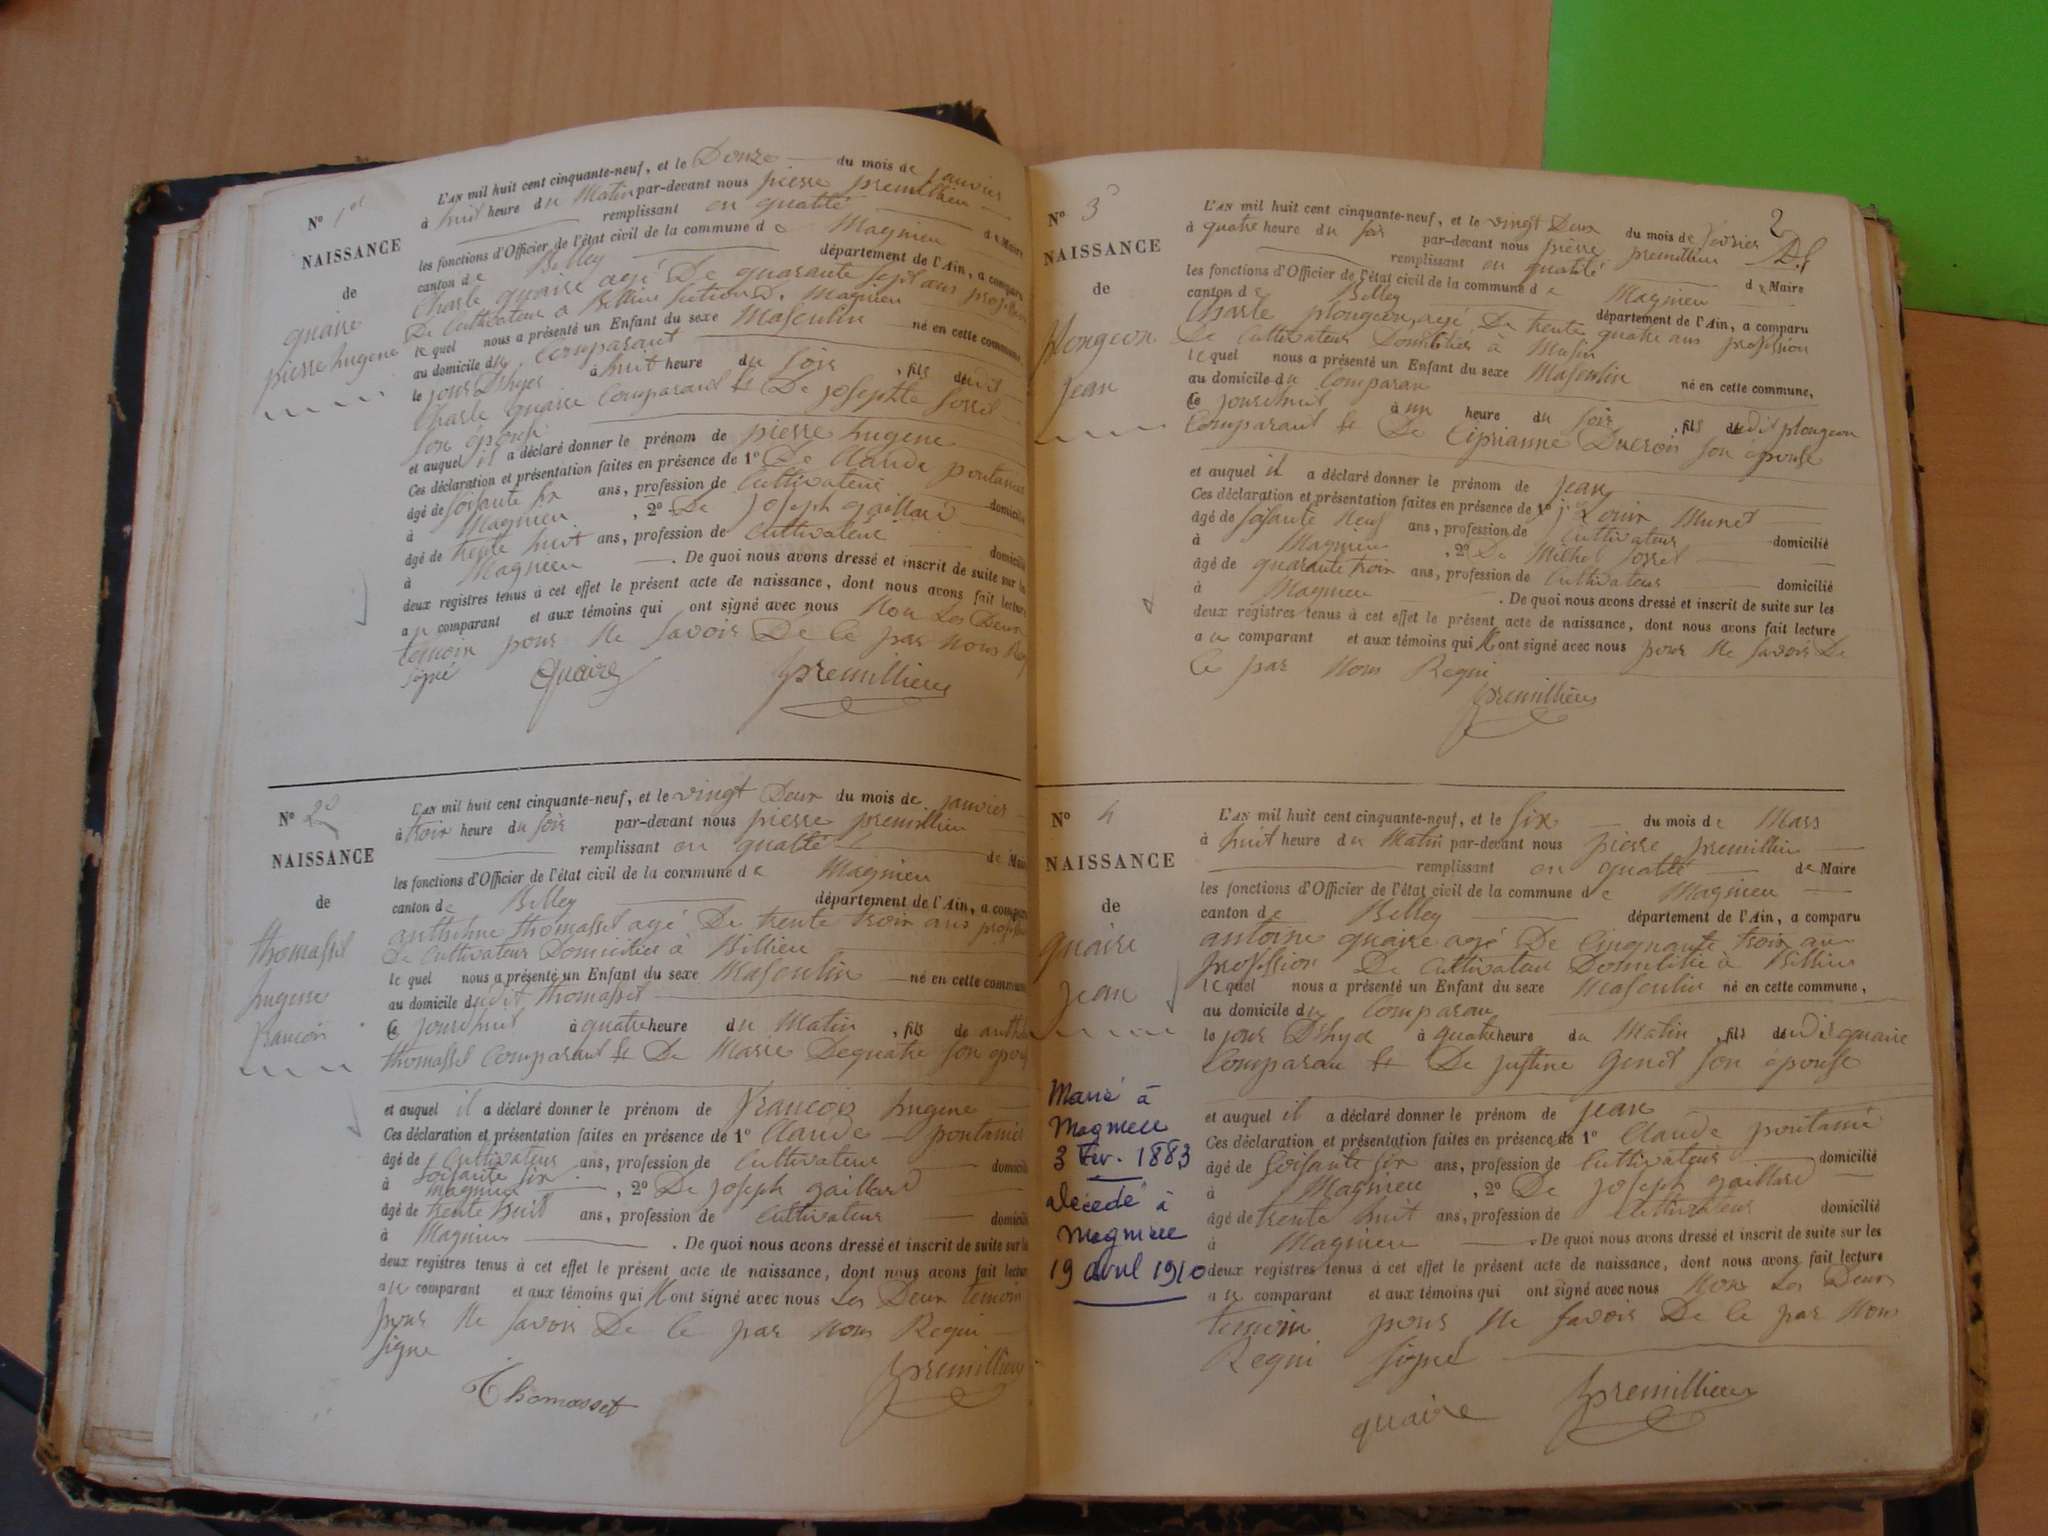 N° 1er
NAISSANCE
de
quaire
pierre hugene
L'AN mil huit cent cinquante-neuf, et le Douze du mois de janvier
à huit heure du Matin par-devant nous pierre premillieu
remplissant en qualité de Maire
les fonctions d'Officier de l'état civil de la commune de Magnieu
canton de Belley département de l'Ain, a comparu
Charle quaire agé De quarante sept ans profession
De Cultivateur a Billieu section De Magnieu
lequel nous a présenté un Enfant du sexe Masculin né en cette commune
au domicile du Comparant
le jour D'hyer à huit heure du soir, fils dudit
Charle quaire Comparant & De josephte sorrel
son épouse
et auquel il a déclaré donner le prénom de pierre hugene
Ces déclaration et présentation faites en présence de 1° De Claude pontanier
âgé de soisante six ans, profession de Cultivateur domicilié
à Magnieu, 2° De joseph gaillard
âgé de trente huit ans, profession de Cultivateur domicilié
à Magnieu. De quoi nous avons dressé et inscrit de suite sur les
deux registres tenus à cet effet le présent acte de naissance, dont nous avons fait lecture
au comparant et aux témoins qui ont signé avec nous Non Les Deux
temoin pour Ne savoir De Ce par Nous
signé
Quaire premillieu
N° 2
NAISSANCE
de
thomasset
hugene
francois
L'AN mil huit cent cinquante-neuf, et le vingt Deux du mois de janvier
à troix heure du soir par-devant nous pierre premillieu
remplissant en qualité de Maire
les fonctions d'Officier de l'état civil de la commune de Magnieu
canton de Belley département de l'Ain, a comparu
anthelme thomasset agé De trente troix ans profession
De Cultivateur Domicilié à Billieu
lequel nous a présenté un Enfant du sexe Masculin né en cette commune
au domicile dudit thomasset
Ce jourd'huit à quatre heure du Matin, fils de
thomasset Comparant & De Marie Dequatre son épouse
et auquel il a déclaré donner le prénom de francois hugene
Ces déclaration et présentation faites en présence de 1° Claude pontanier
âgé de Cultivateur ans, profession de Cultivateur domicilié
soisante six
à Magnieu, 2° De joseph gaillard
âgé de trente huit ans, profession de Cultivateur domicilié
à Magnieu. De quoi nous avons dressé et inscrit de suite sur les
deux registres tenus à cet effet le présent acte de naissance, dont nous avons fait lecture
au comparant et aux témoins qui Nont signé avec nous Les Deux temoin
pour Ne savoir De Ce par Nous Requi
signe
Thomasset premillieu
2
N° 3
NAISSANCE
de
plongeon
jean
L'AN mil huit cent cinquante-neuf, et le vingt Deux du mois de fevrier
à quatre heure du soir par-devant nous pierre premillieu
remplissant en qualité de Maire
les fonctions d'Officier de l'état civil de la commune de Magnieu
canton de Belley département de l'Ain, a comparu
Charle plongeon agé De trente quatre ans profession
De Cultivateur Domicilié à
lequel nous a présenté un Enfant du sexe Masculin né en cette commune,
au domicile du Comparan
Ce jourd'huit à un heure du soir, fils dudit plongeon
Comparant & De Ciprianne Ducroix son épouse
et auquel il a déclaré donner le prénom de jean
Ces déclaration et présentation faites en présence de 1° Louix Munet
âgé de soisante Neuf ans, profession de Cultivateur domicilié
à Magnieu, 2° De Michel sorrel
âgé de quarante troix ans, profession de Cultivateur domicilié
à Magnieu. De quoi nous avons dressé et inscrit de suite sur les
deux registres tenus à cet effet le présent acte de naissance, dont nous avons fait lecture
au comparant et aux témoins qui Nont signé avec nous pour Ne savoir De
Ce par Nous Requi
premillieu
N° 4
NAISSANCE
de
quaire
jean
Marié à
Magnieu
3 Fév. 1883
décédé à
Magnieu
19 avril 1910
L'AN mil huit cent cinquante-neuf, et le six du mois de Mars
à huit heure du Matin par-devant nous pierre premillieu
remplissant en qualité de Maire
les fonctions d'Officier de l'état civil de la commune de Magnieu
canton de Belley département de l'Ain, a comparu
antoine quaire agé De Cinquante troix an
profession De Cultivateur Domicilié à Billieu
lequel nous a présenté un Enfant du sexe Masculin né en cette commune,
au domicile du Comparan
le jour D'hyer à quatre heure du Matin, fils dudit quaire
Comparan & De justine genet son épouse
et auquel il a déclaré donner le prénom de jean
Ces déclaration et présentation faites en présence de 1° Claude pontanié
âgé de soisante six ans, profession de Cultivateur domicilié
à Magnieu, 2° De joseph gaillard
âgé de trente huit ans, profession de Cultivateur domicilié
à Magnieu. De quoi nous avons dressé et inscrit de suite sur les
deux registres tenus à cet effet le présent acte de naissance, dont nous avons fait lecture
au comparant et aux témoins qui ont signé avec nous Non Les Deux
temoin pour Ne savoir De Ce par Nous
Requi signé
quaire premillieu